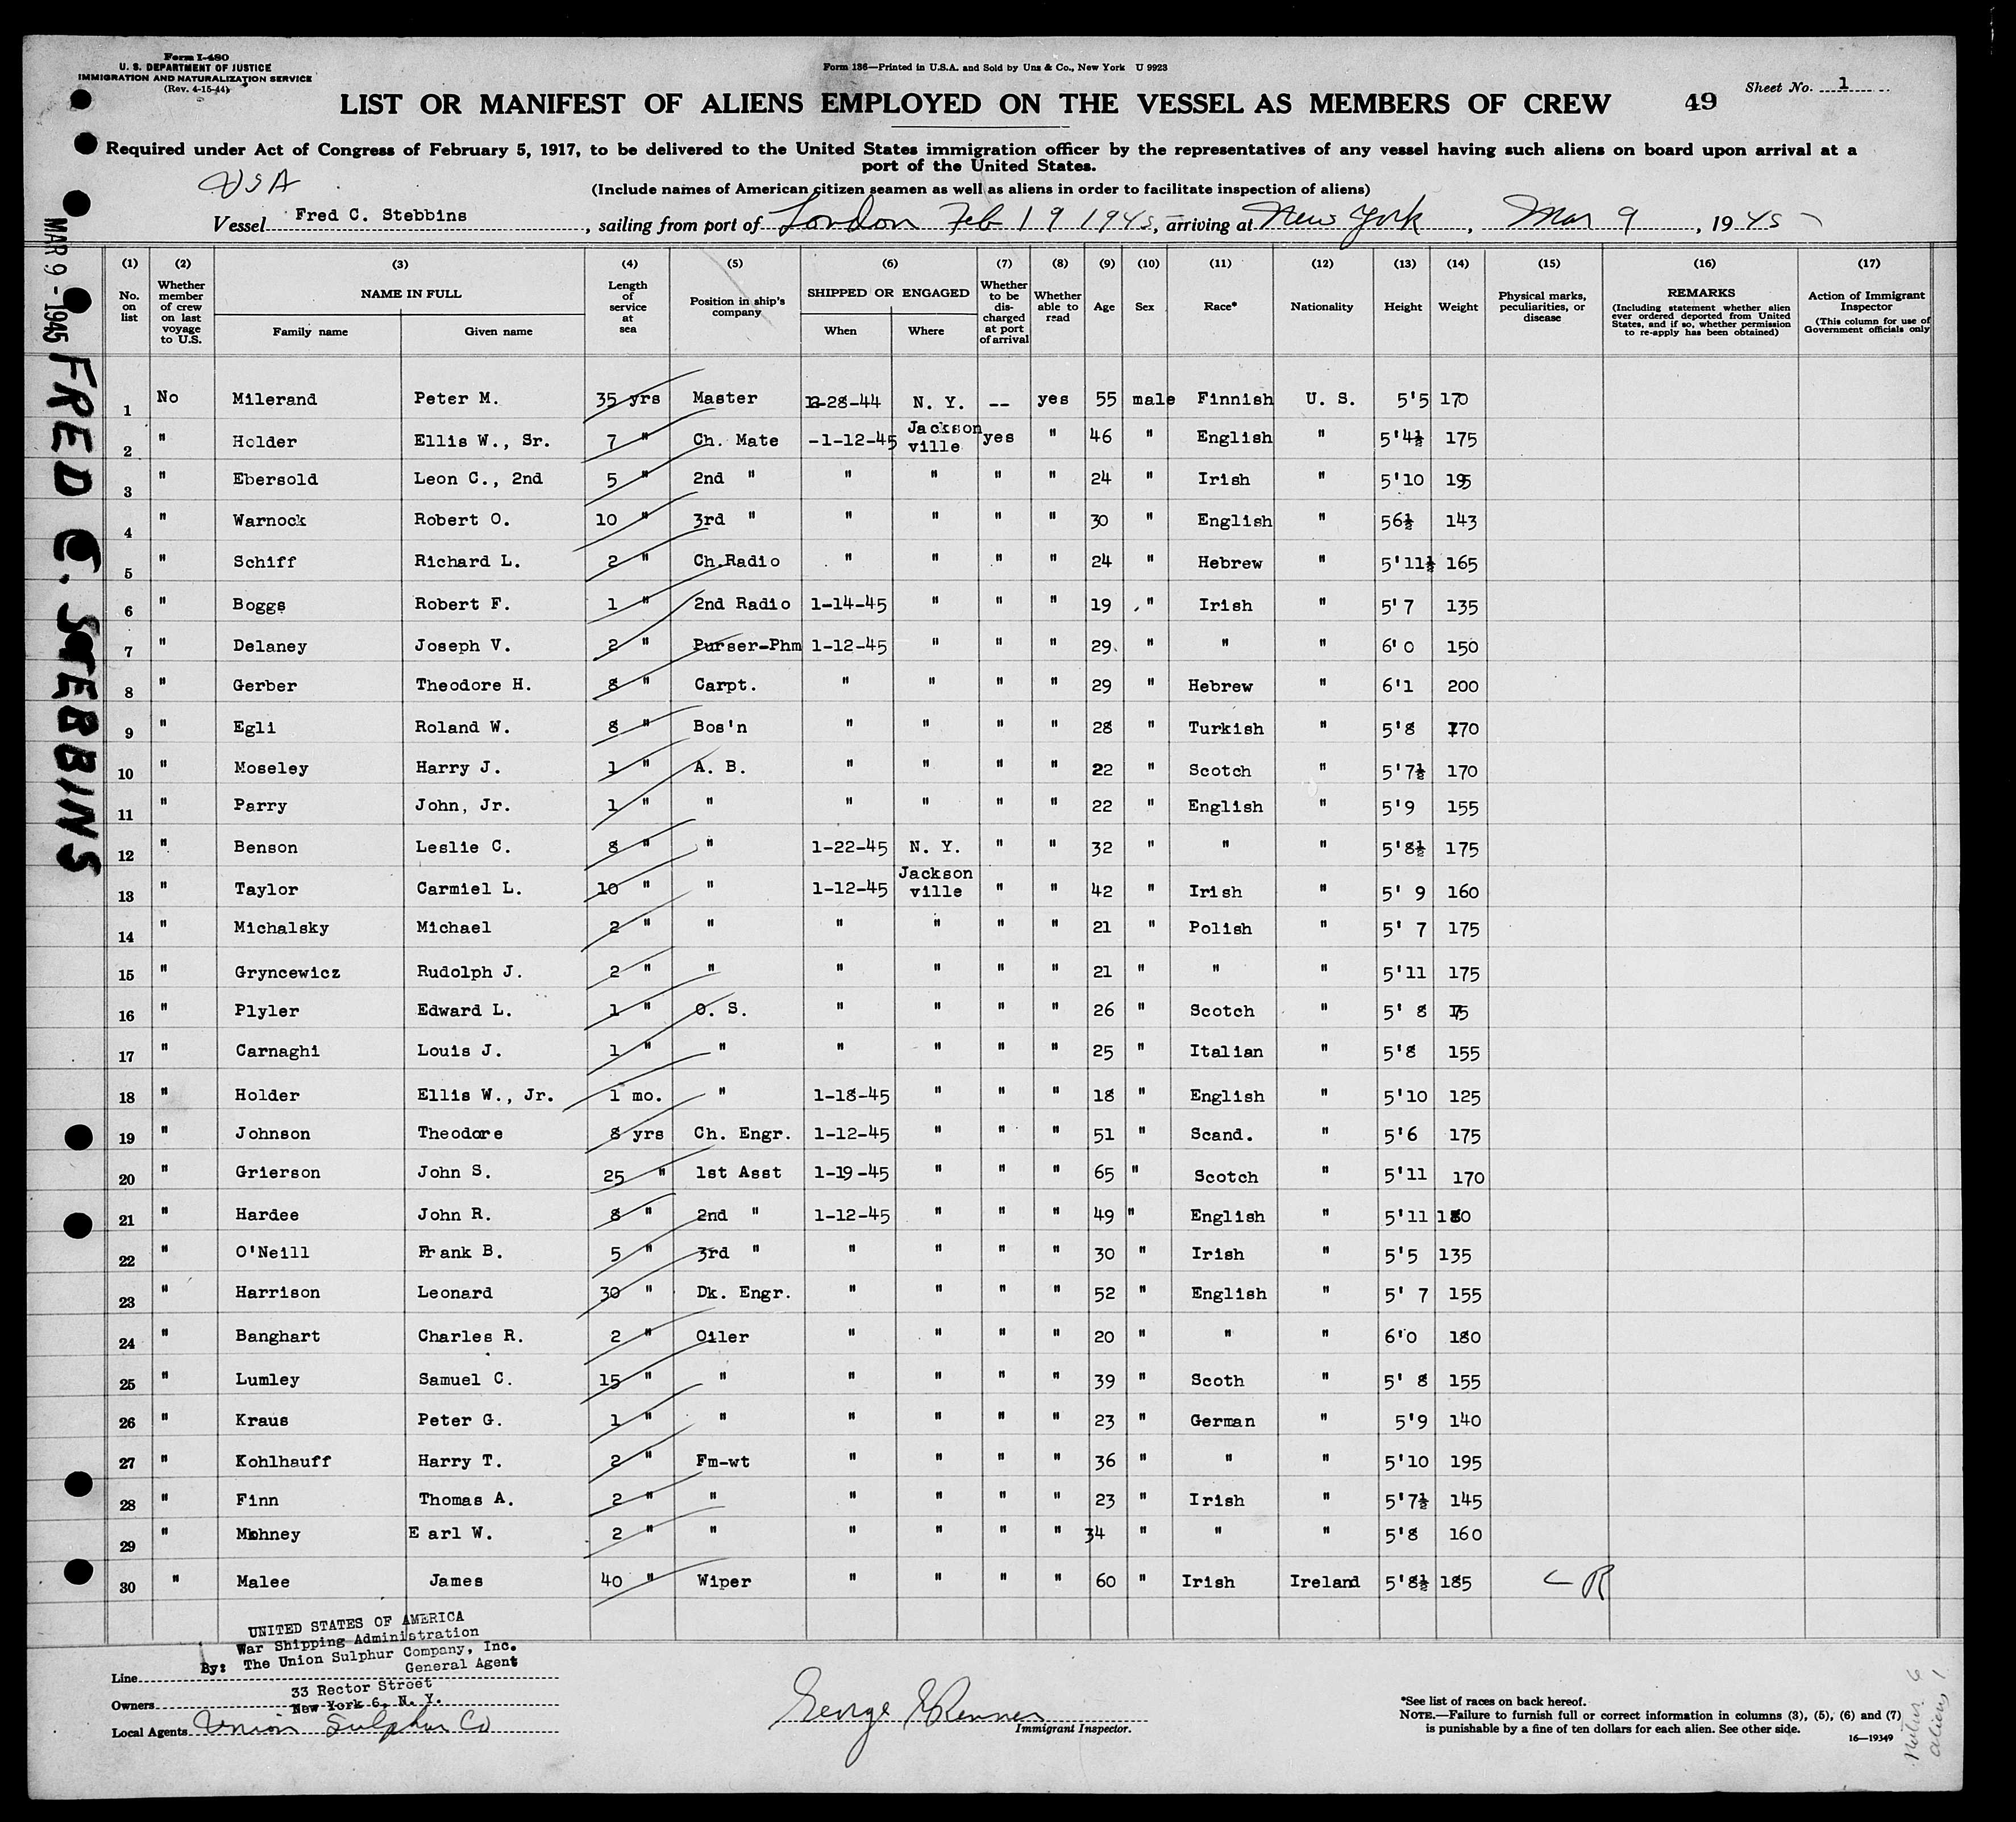 Form I-480
U. S. DEPARTMENT OF JUSTICE
IMMIGRATION AND NATURALIZATION SERVICE
(Rev. 4-15-44)
Form 136—Printed in U.S.A. and Sold by Unz & Co., New York U 9923
Sheet No. 1
LIST OR MANIFEST OF ALIENS EMPLOYED ON THE VESSEL AS MEMBERS OF CREW 49
Required under Act of Congress of February 5, 1917, to be delivered to the United States immigration officer by the representatives of any vessel having such aliens on board upon arrival at a
port of the United States.
USA
(Include names of American citizen seamen as well as aliens in order to facilitate inspection of aliens)
Vessel Fred C. Stebbins, sailing from port of London Feb 19 1945, arriving at New York, Mar 9, 1945
MAR 9 - 1945
FRED C. STEBBINS
(1) (2) (3) (4) (5) (6) (7) (8) (9) (10) (11) (12) (13) (14) (15) (16) (17)
No. on list
Whether member of crew on last voyage to U.S.
NAME IN FULL
Family name
Given name
Length of service at sea
Position in ship's company
SHIPPED OR ENGAGED
When
Where
Whether to be discharged at port of arrival
Whether able to read
Age
Sex
Race*
Nationality
Height
Weight
Physical marks, peculiarities, or disease
REMARKS
(Including statement whether alien ever ordered deported from United States, and if so, whether permission to re-apply has been obtained)
Action of Immigrant Inspector
(This column for use of Government officials only
1 No Milerand Peter M. 35 yrs Master 12-28-44 N. Y. -- yes 55 male Finnish U. S. 5'5 170
2 " Holder Ellis W., Sr. 7 " Ch. Mate -1-12-45 Jackson ville yes " 46 " English " 5'4½ 175
3 " Ebersold Leon C., 2nd 5 " 2nd " " " " " 24 " Irish " 5'10 195
4 " Warnock Robert O. 10 " 3rd " " " " " 30 " English " 56½ 143
5 " Schiff Richard L. 2 " Ch.Radio " " " " 24 " Hebrew " 5'11½ 165
6 " Boggs Robert F. 1 " 2nd Radio 1-14-45 " " " 19 " Irish " 5'7 135
7 " Delaney Joseph V. 2 " Purser-Phm 1-12-45 " " " 29 " " " 6'0 150
8 " Gerber Theodore H. 8 " Carpt. " " " " 29 " Hebrew " 6'1 200
9 " Egli Roland W. 8 " Bos'n " " " " 28 " Turkish " 5'8 170
10 " Moseley Harry J. 1 " A. B. " " " " 22 " Scotch " 5'7½ 170
11 " Parry John, Jr. 1 " " " " " " 22 " English " 5'9 155
12 " Benson Leslie C. 8 " " 1-22-45 N. Y. " " 32 " " " 5'8½ 175
13 " Taylor Carmiel L. 10 " " 1-12-45 Jackson ville " " 42 " Irish " 5' 9 160
14 " Michalsky Michael 2 " " " " " " 21 " Polish " 5' 7 175
15 " Gryncewicz Rudolph J. 2 " " " " " " 21 " " " 5'11 175
16 " Plyler Edward L. 1 " O. S. " " " " 26 " Scotch " 5' 8
17 " Carnaghi Louis J. 1 " " " " " " 25 " Italian " 5'8 155
18 " Holder Ellis W., Jr. 1 mo. " 1-18-45 " " " 18 " English " 5'10 125
19 " Johnson Theodore 8 yrs Ch. Engr. 1-12-45 " " " 51 " Scand. " 5'6 175
20 " Grierson John S. 25 " 1st Asst 1-19-45 " " " 65 " Scotch " 5'11 170
21 " Hardee John R. 8 " 2nd " 1-12-45 " " " 49 " English " 5'11 180
22 " O'Neill Frank B. 5 " 3rd " " " " " 30 " Irish " 5'5 135
23 " Harrison Leonard 30 " Dk. Engr. " " " " 52 " English " 5' 7 155
24 " Banghart Charles R. 2 " Oiler " " " " 20 " " " 6'0 180
25 " Lumley Samuel C. 15 " " " " " " 39 " Scoth " 5' 8 155
26 " Kraus Peter G. 1 " " " " " " 23 " German " 5'9 140
27 " Kohlhauff Harry T. 2 " Fm-wt " " " " 36 " " " 5'10 195
28 " Finn Thomas A. 2 " " " " " " 23 " Irish " 5'7½ 145
29 " Mohney Earl W. 2 " " " " " " 34 " " " 5'8 160
30 " Malee James 40 " Wiper " " " " 60 " Irish Ireland 5'8½ 185
UNITED STATES OF AMERICA
War Shipping Administration
By: The Union Sulphur Company, Inc.
General Agent
Line
33 Rector Street
Owners New York 6, N. Y.
Local Agents Union Sulphur Co
George Renner
Immigrant Inspector.
*See list of races on back hereof.
NOTE.—Failure to furnish full or correct information in columns (3), (5), (6) and (7)
is punishable by a fine of ten dollars for each alien. See other side.
16—19349
aliens 1